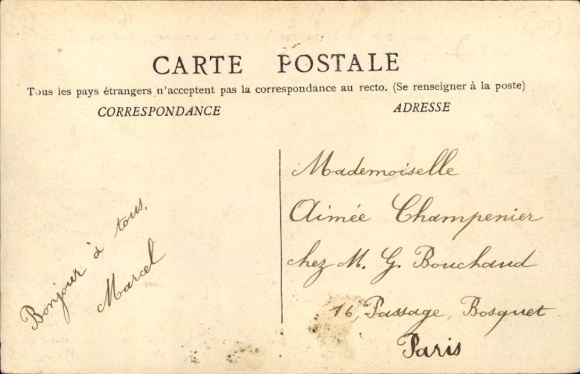 CARTE POSTALE
Tous les pays étrangers n'acceptent pas la correspondance au recto. (Se renseigner à la poste)
CORRESPONDANCE
ADRESSE
Bonjour à tous.
Marcel
Mademoiselle
Aimée Champenier
chez M. G. Bouchaud
16, Passage, Bosquet
Paris